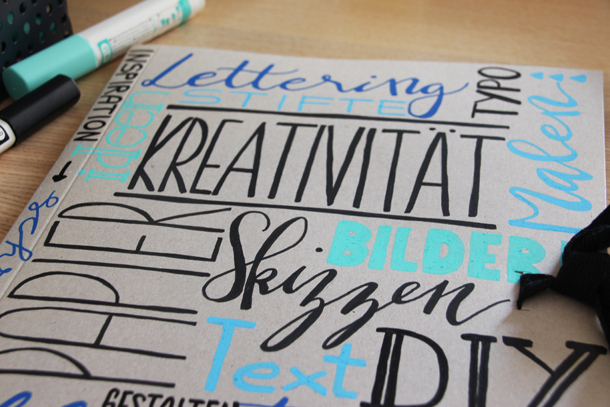 INSPIRATION
Lettering
STIFTE
TYPO
Ideen
KREATIVITÄT
Malen
PAPIER
Skizzen
BILDER
Text
DIY
GESTALTEN